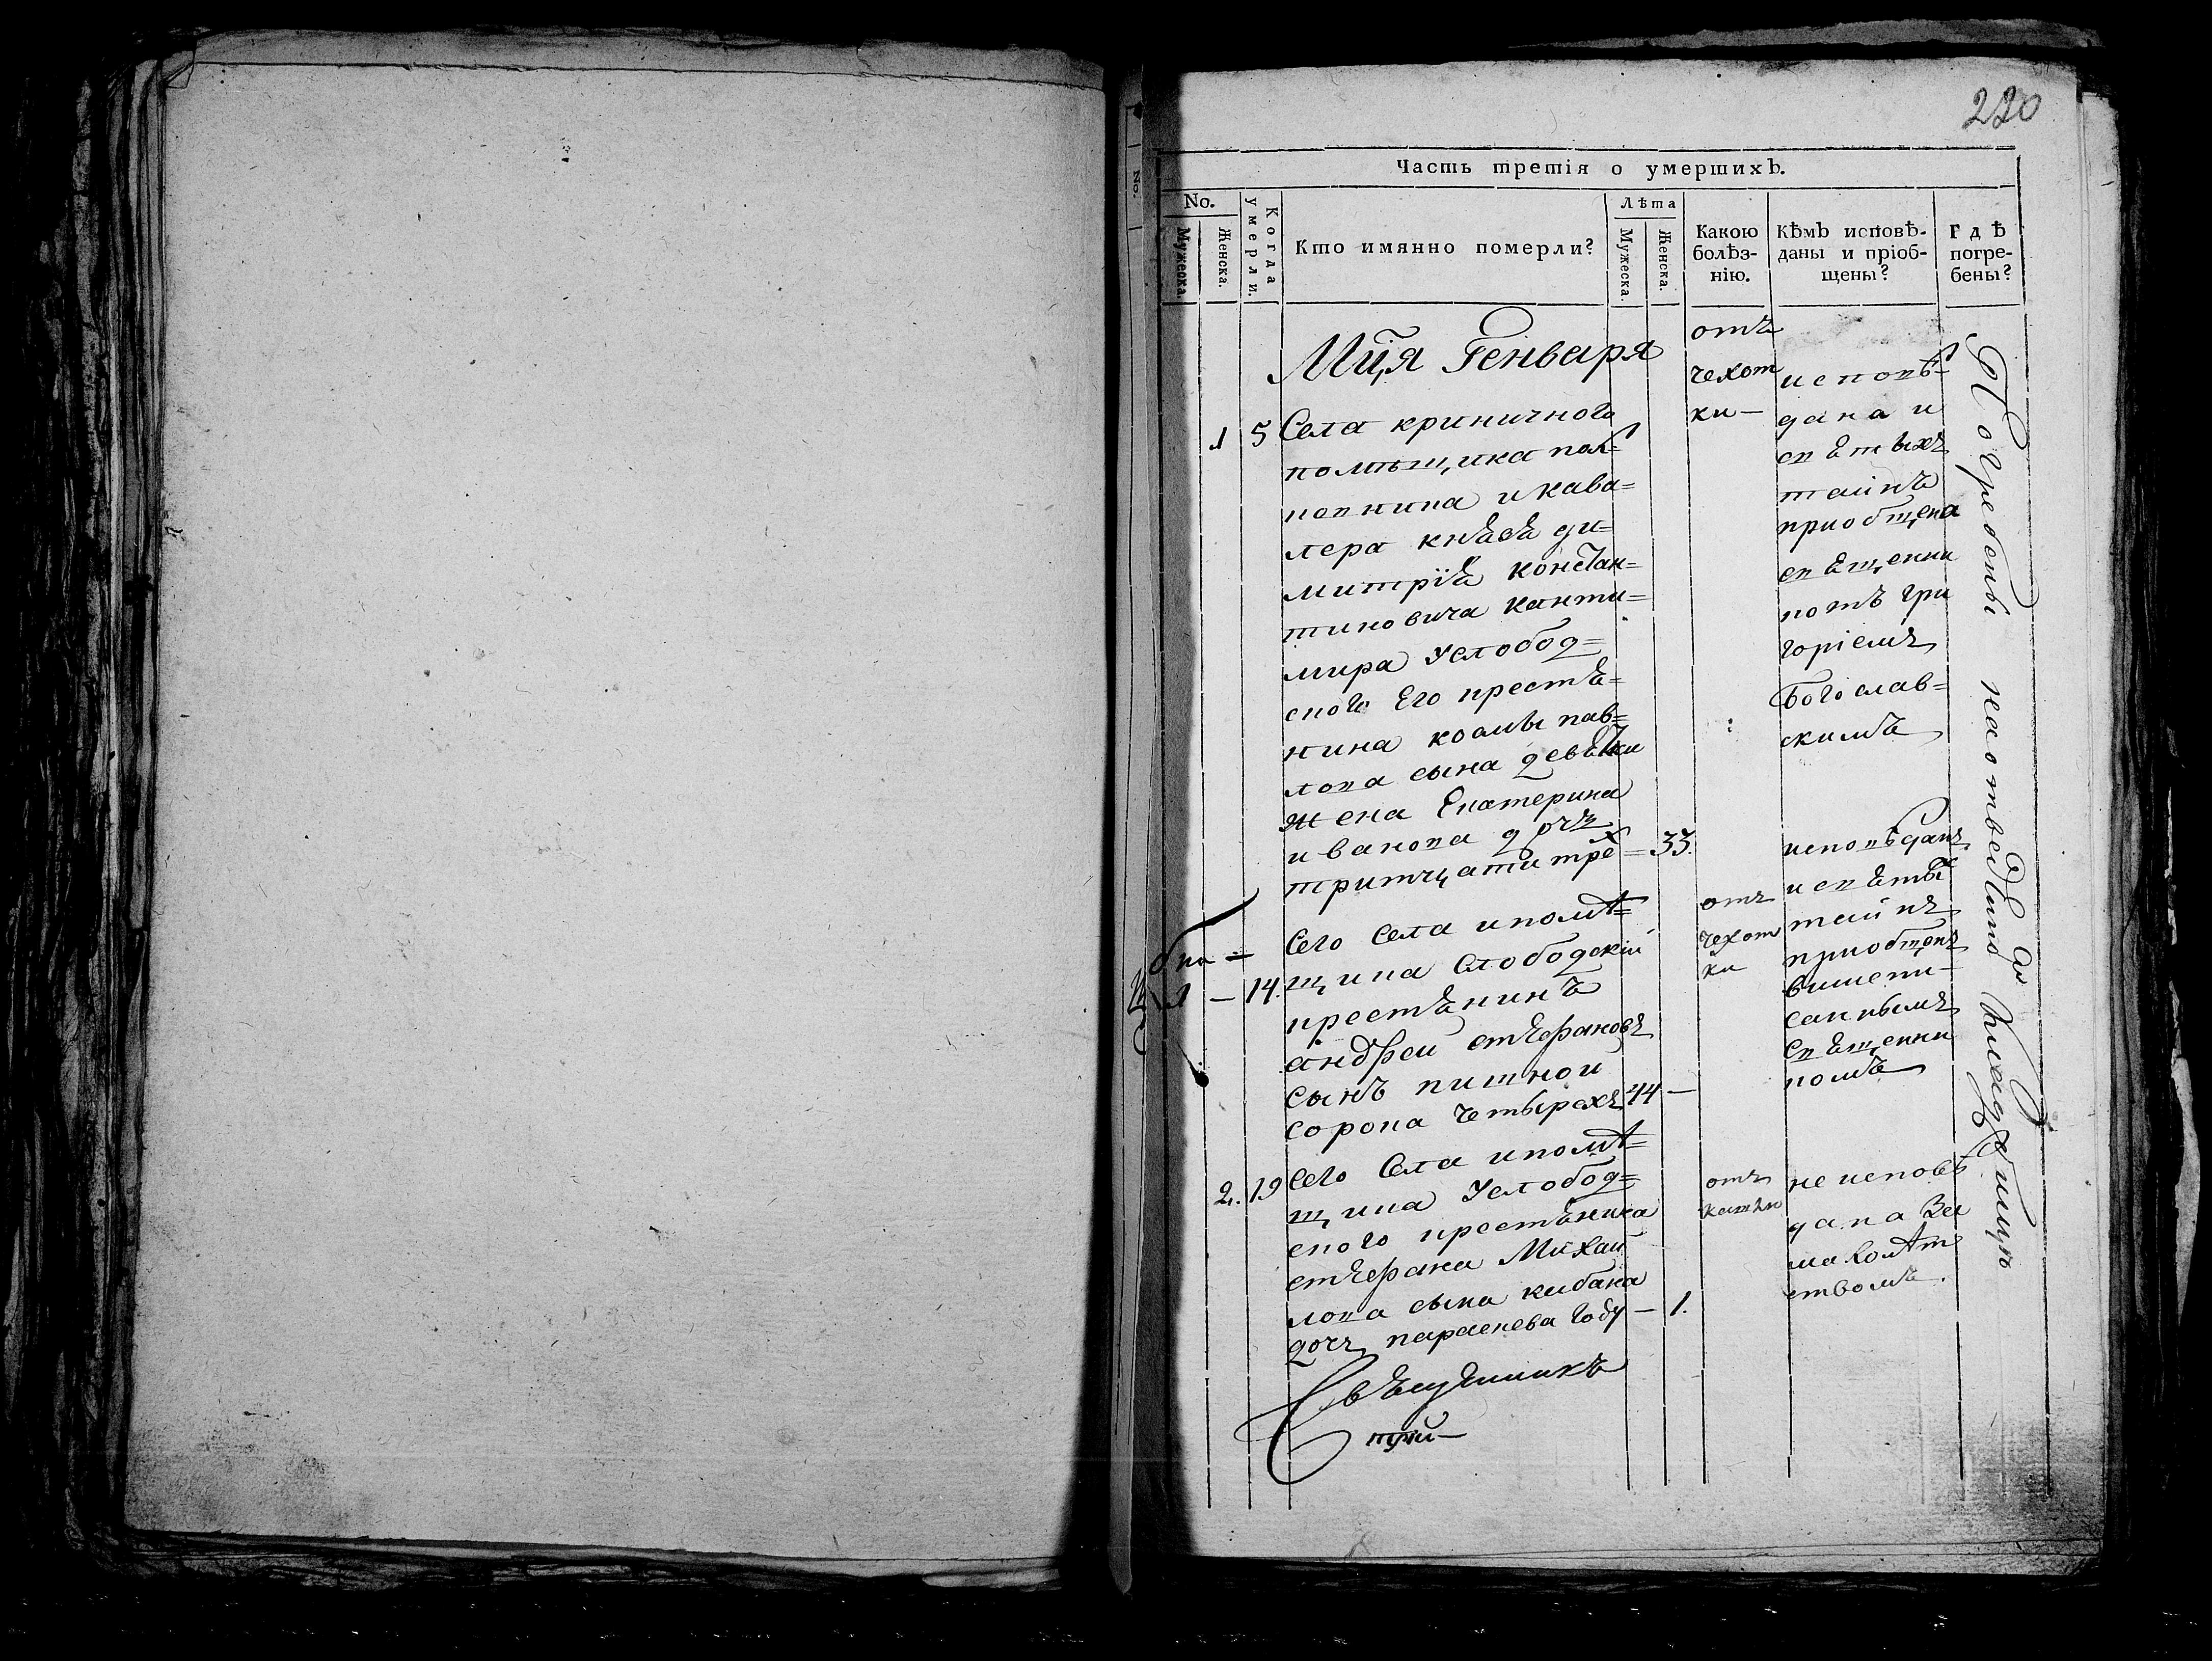 220
No.
Часть третія о умершихъ.
No.
Мужеска.
Женска.
Когда умерли.
Кто имянно померли?
Лѣта
Мужеска.
Женска.
Какою болѣз-
нію.
Кѣмъ исповѣ-
даны и пріоб-
щены?
Гдѣ
погре-
бены?
Мц҃а Генваря
1 5
Села криничного
помѣщика пол=
ковника и кава=
лера кнѧзѧ ди=
митріѧ констан=
тиновича канти=
мира услобод=
ского Его крестѧ=
нина козмы пав=
лова сына девѧтки
жена Екатерина
иванова дочь
тритцати трех = 33.
отъ
чехот
ки —
исповѣ=
дана и
свѧтыхъ
тайнъ
приобщена
свѧщенни
комъ гри
горіемъ
Богослав=
скимъ
1 — 14.
Сего Села и помѣ=
щика слободскій
крестѧнинъ
андреи стефановъ
сынъ китной
сорока четырехъ 44 —
отъ
чехот
ки
исповѣданъ
и свѧты х
тайнъ
приобщенъ
вишепи-
саннымъ
Свѧщенни
комъ
2. 19
Сего Села и помѣ=
щика услобод=
ского крестѧнина
стефана Михай
лова сына кабана
дочь параскева году — 1.
отъ
кашлю
не исповѣ
дана За
малолѣт
ствомъ.
Погребены на отведенномъ Кладбищѣ
Свѧщенникъ